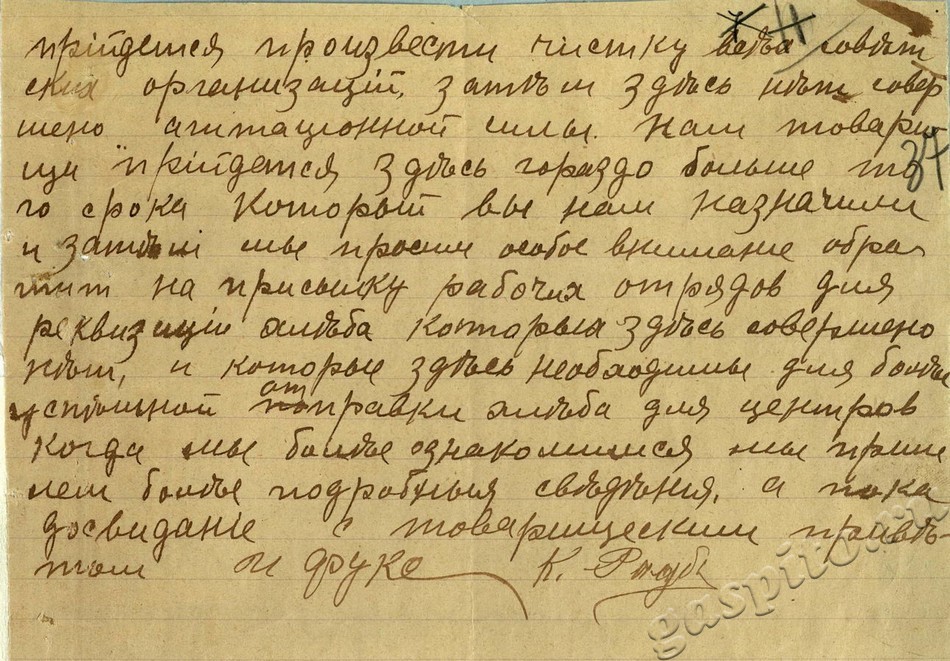 11
прійдется произвести чистку всѣхъ совѣт
ских организацій, затѣм здѣсь нѣт совер
шено агитационной силы. Нам товари
щи прійдется здѣсь гораздо больше то
37
го срока который вы нам назначили
и затѣм мы просим особое внимание обра
тит на присылку рабочих отрядов для
реквизиціи хлѣба которых здѣсь совершено
нѣт, и которые здѣсь необходимы для болѣе
успѣшной от
правки хлѣба для центров
когда мы болѣе ознакомимся мы приш
лем болѣе подробныя свѣдѣния, а пока
досвиданіе с товарищеским привѣ-
том К.
gaspito.ru